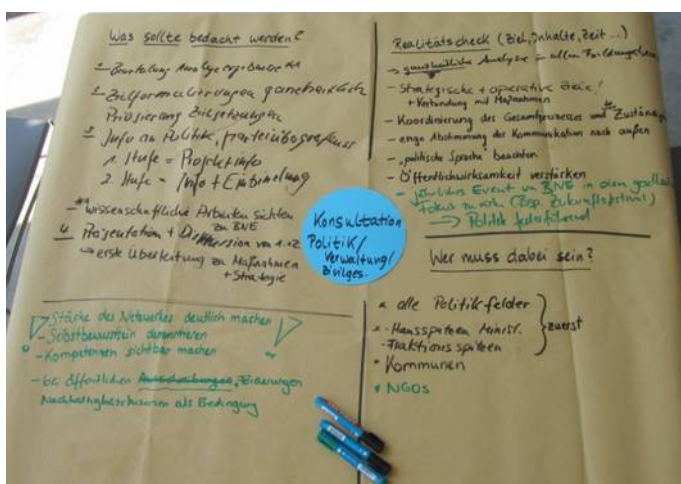 Was sollte bedacht werden?
- Beurteilung Analyseergebnisse
- Zielformulierungen ganzheitlich
Priorisierung Zielsetzungen
- Info an Politik, parteiübergreifend
1. Stufe = Projektinfo
2. Stufe = Info + Einbindung
- wissenschaftliche Arbeiten sichten
zu BNE
4. Präsentation + Diskussion von 1.+2.
↳ erste Überleitung zu Maßnahmen
+ Strategie
Stärke des Netzwerkes deutlich machen
- Selbstbewusstsein demonstrieren
- Kompetenzen sichtbar machen
- bei öffentlichen Förderungen
Nachhaltigkeitskriterien als Bedingung
Konsultation
Politik/
Verwaltung/
Zivilges.
Realitätscheck (Ziel, Inhalte, Zeit ...)
→ ganzheitliche Analyse in allen Bildungsbereichen
- Strategische + operative Ziele!
+ Verbindung mit Maßnahmen
- Koordinierung des Gesamtprozesses und Zuständigk.
- enge Abstimmung der Kommunikation nach außen
- „politische Sprache beachten
- Öffentlichkeitswirksamkeit verstärken
- jährliches Event zu BNE in den
Fokus (Bsp. Zukunftsfestival)
→ Politik federführend
Wer muss dabei sein?
* alle Politikfelder
* - Hausspitzen Minist.
- Fraktionsspitzen
zuerst
* Kommunen
* NGOs